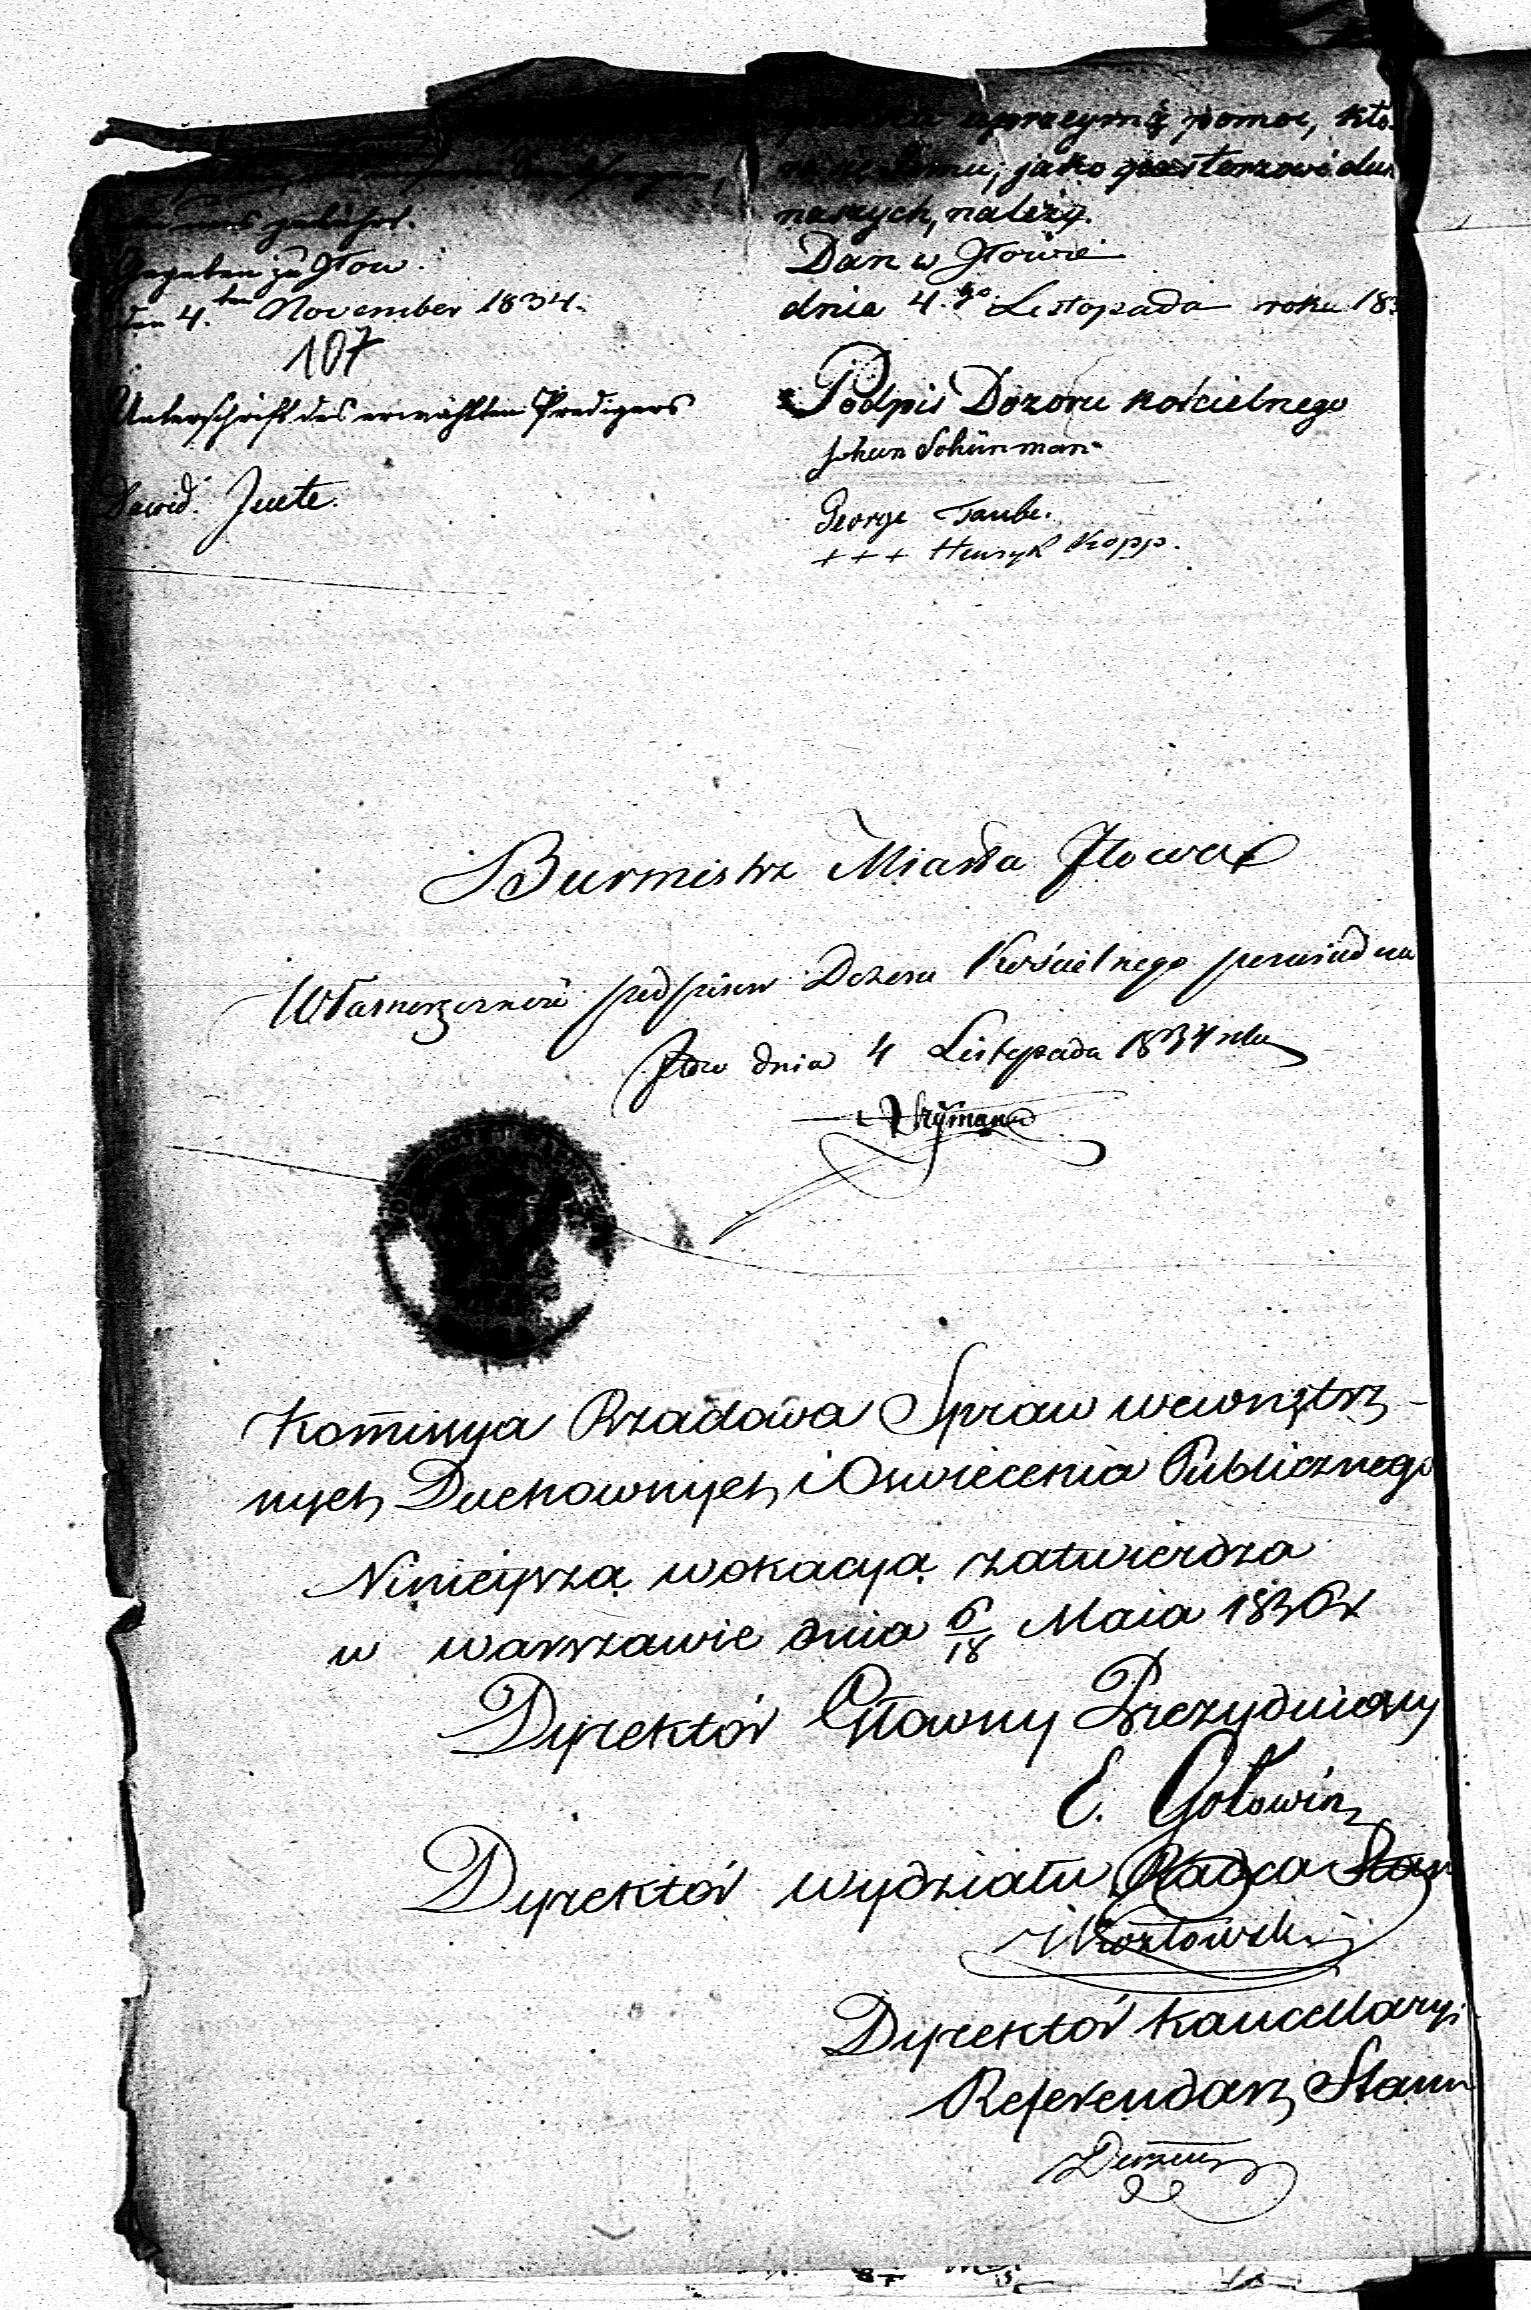 uns gebührt.
Gegeben zu Iłow.
den 4.ten November 1834.
107
Unterschrift des erwählten Predigers
Dawid. Jutte.
uprzeymą pomoc, któ-
jako pasterzowi dusz
naszych, należy.
Dan w Iłowie
dnia 4.go Listopada roku 183
Podpis Dozoru Kościelnego
Johan Schünman
George Taube.
+ + + Henryk Kopp.
Burmistrz Miasta Iłowa
Własnoręczność podpisow Dozoru Kościelnego poswiadcza
Iłow dnia 4 Listopada 1834 roku
Kommissya Rządowa Spraw wewnętrz-
nych Duchownych i Oswiecenia Publicznego
Ninieyszą wokacyą zatwierdza
w warszawie dnia 6/18 Maia 1836 r
Dyrektór Głowny Prezyduiący
E. Gołowin
Dyrektór wydziału Radca Stanu
Kozłowski
Dyrektór Kancellaryi
Referendarz Stanu